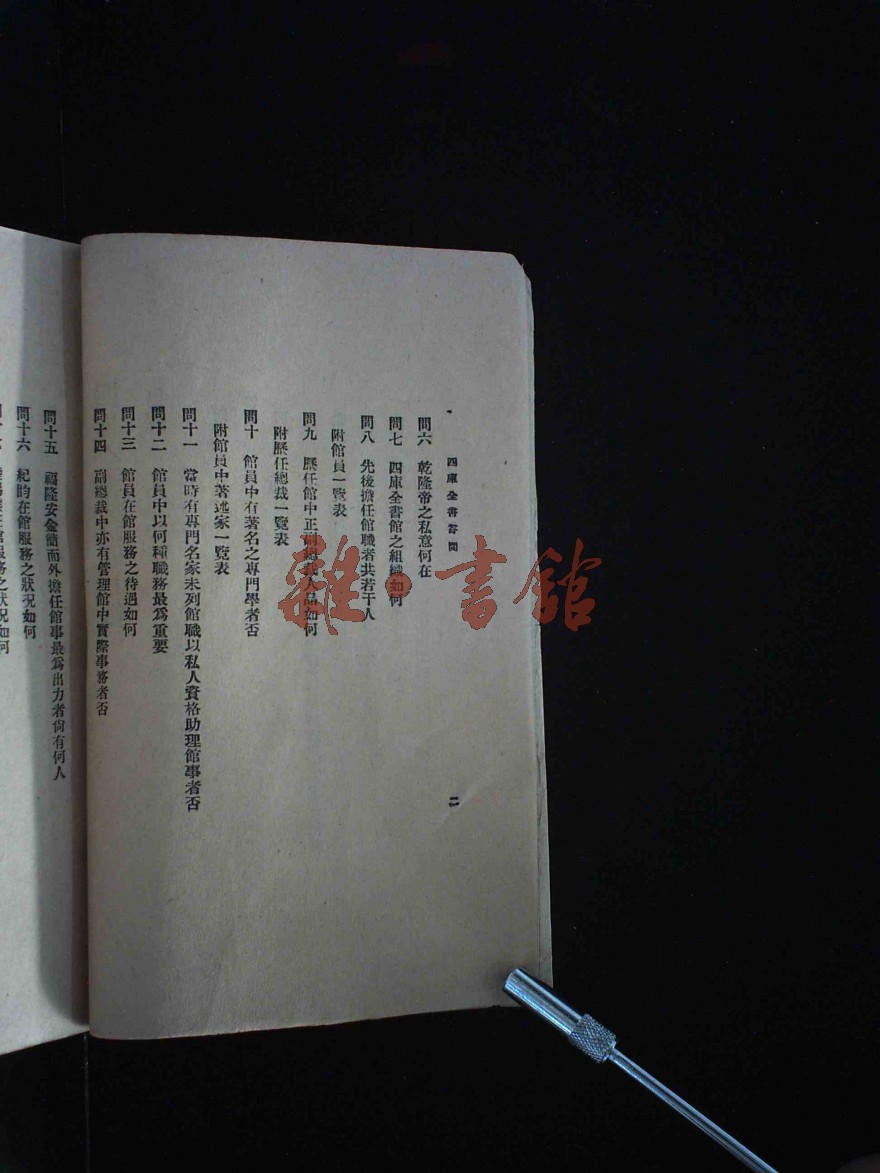 四庫全書答問
二
問六　乾隆帝之私意何在
問七　四庫全書館之組織如何
問八　先後擔任館職者共若干人
附館員一覽表
問九　歷任館中正副總裁人品如何
附歷任總裁一覽表
問十　館員中有著名之專門學者否
附館員中著述家一覽表
問十一　當時有專門名家未列館職以私人資格助理館事者否
問十二　館員中以何種職務最爲重要
問十三　館員在館服務之待遇如何
問十四　副總裁中亦有管理館中實際事務者否
問十五　福隆安金簡而外擔任館事最爲出力者尙有何人
問十六　紀昀在館服務之狀況如何
在館服務之狀況如何
雜·書館